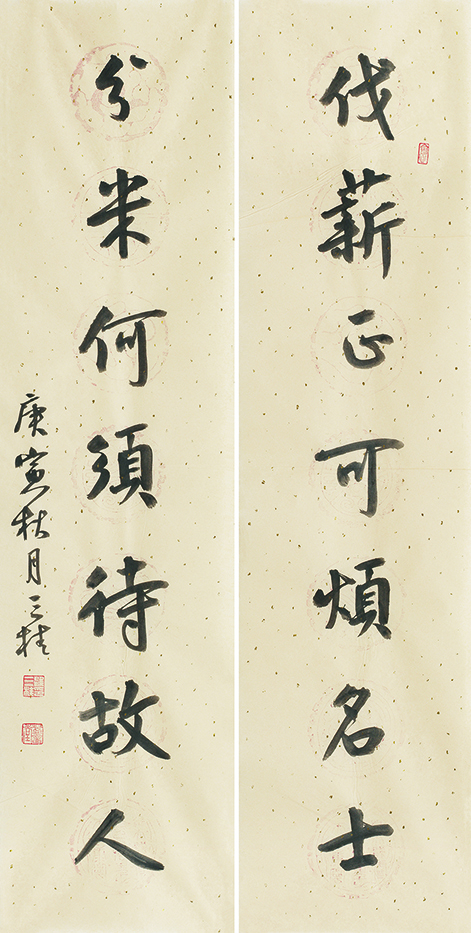 伐薪正可煩名士
分米何須待故人
庚寅秋月三桂